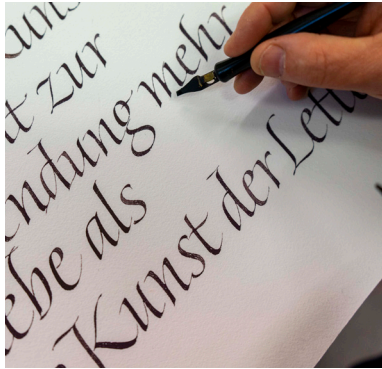 Kuns
t zur
endung mehr
ebe als
Kunst der Lett